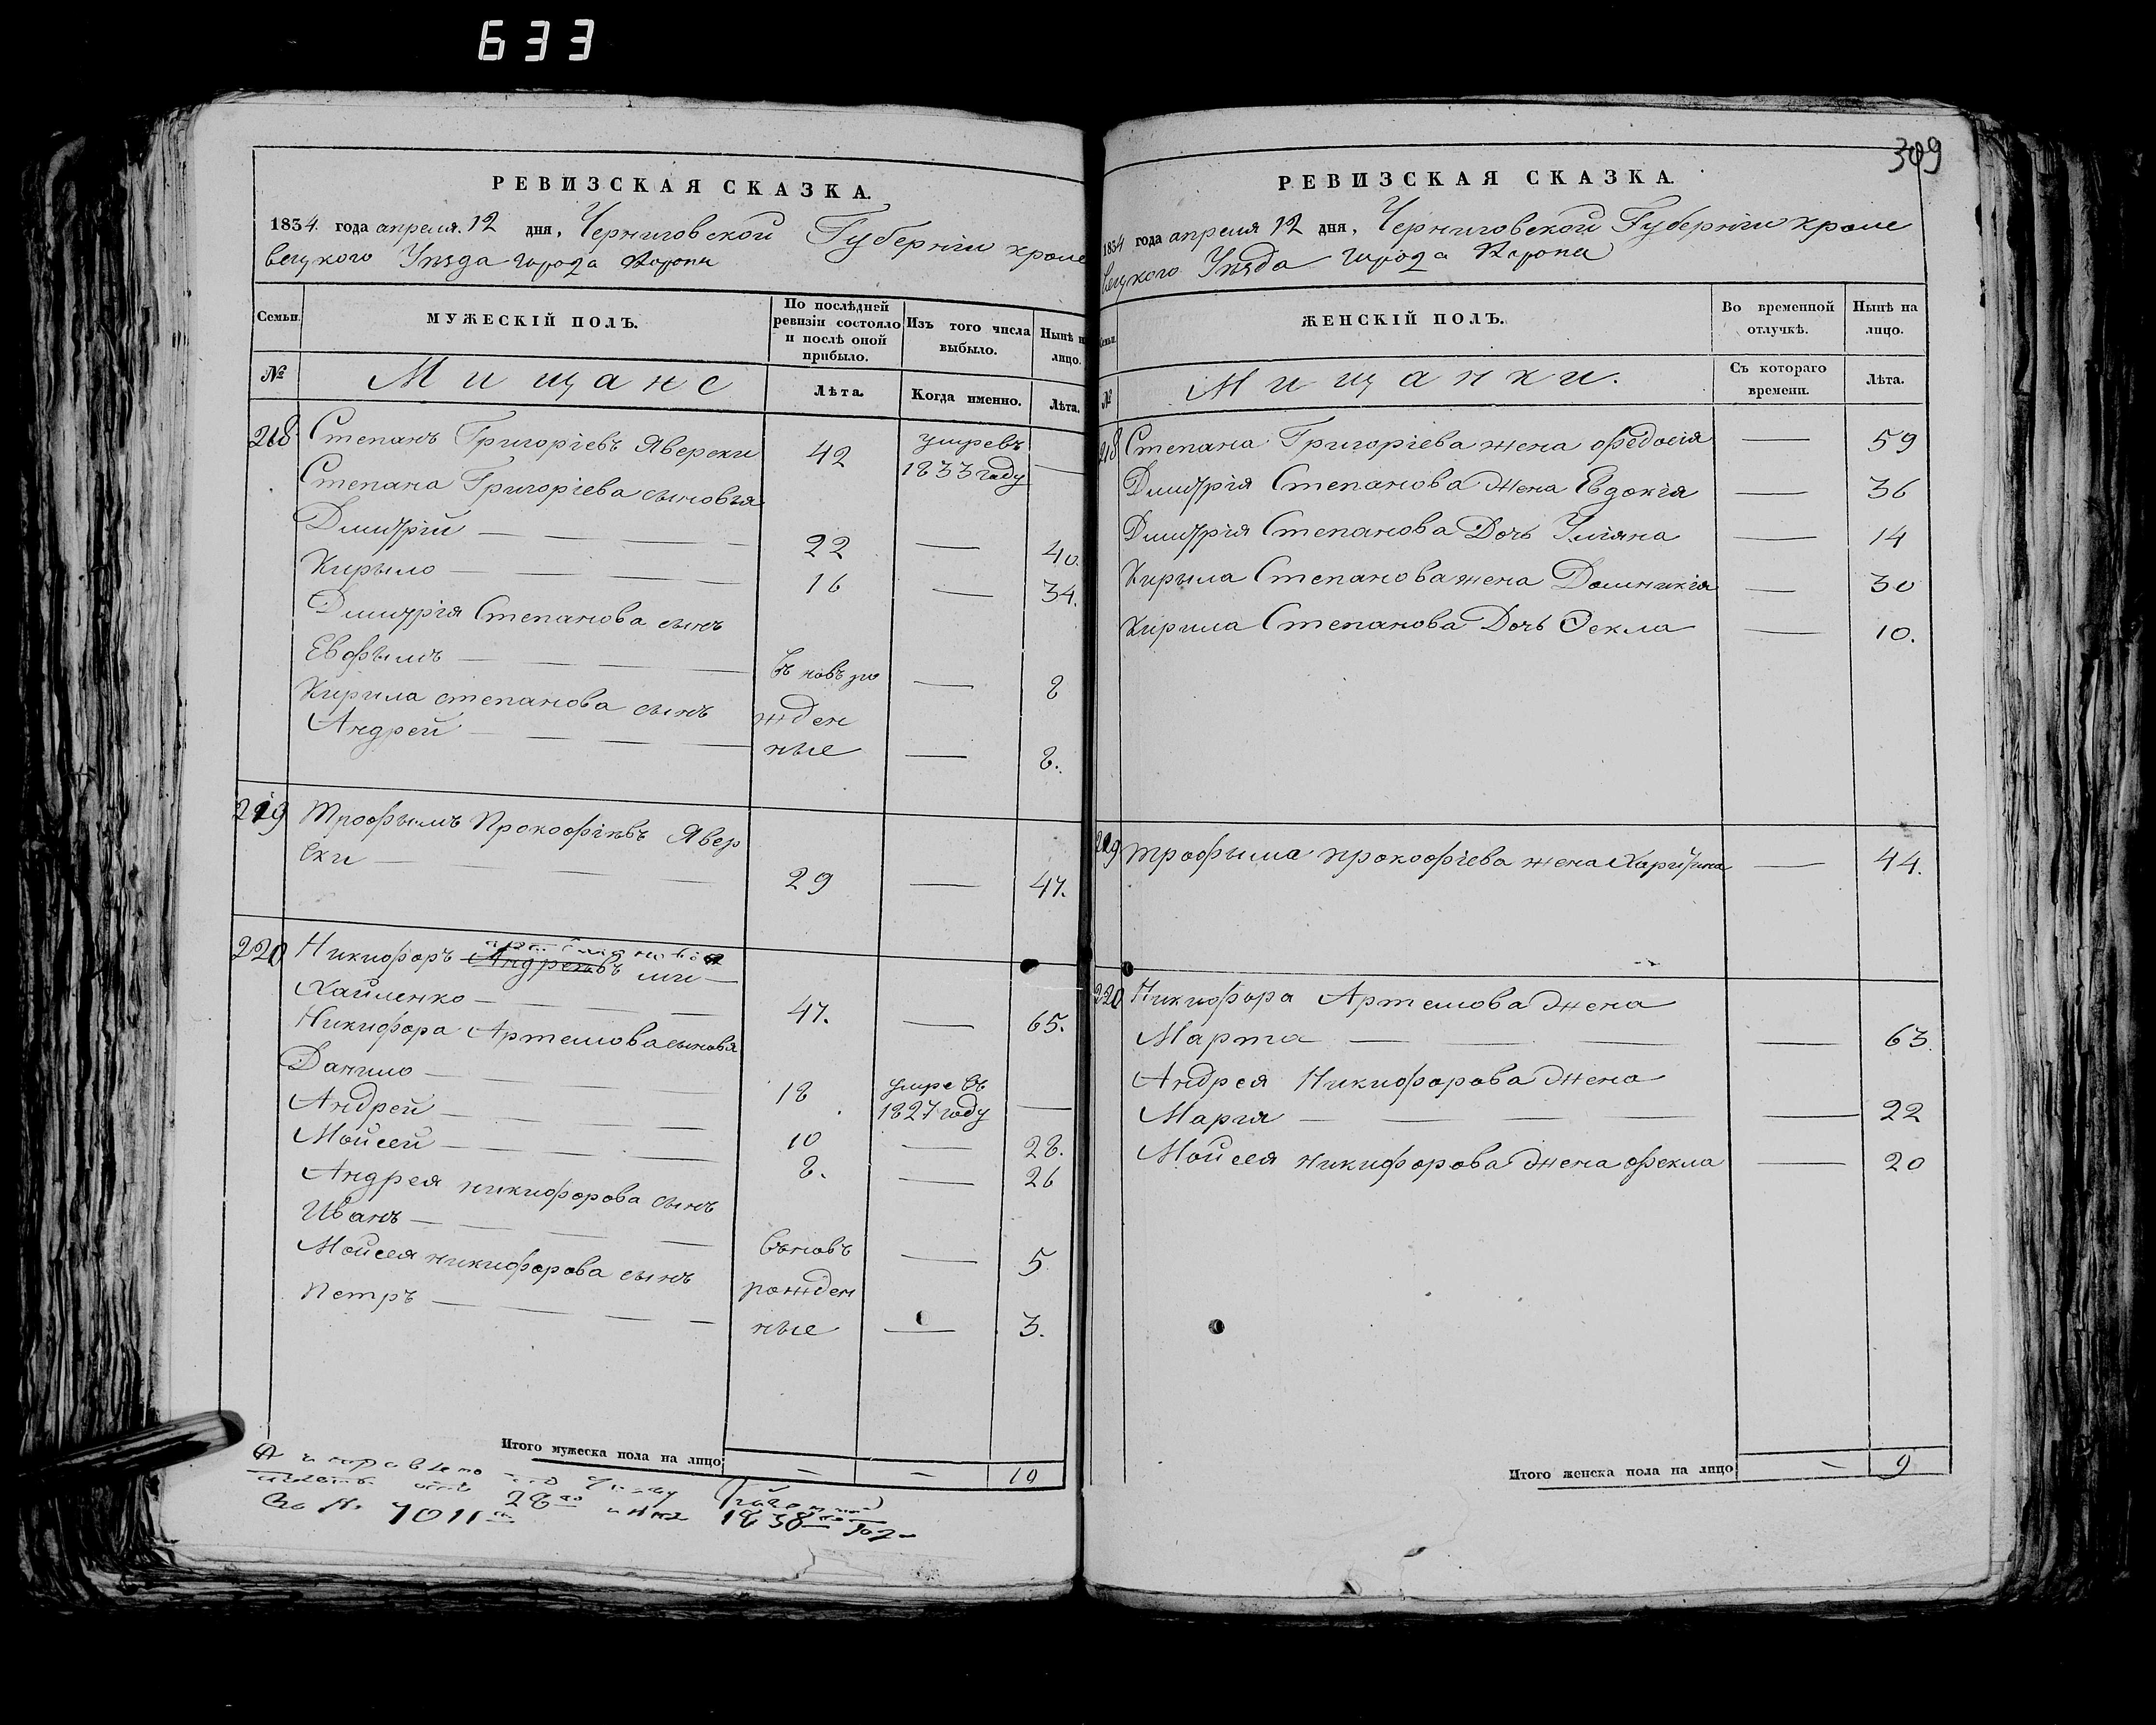 633
РЕВИЗСКАЯ СКАЗКА.
1834 года апреля 12 дня, Черниговской Губерніи кроле
вецкого Уезда города Коропа
Семьи.
МУЖЕСКІЙ ПОЛЪ.
По послѣдней ревизіи состояло и послѣ оной прибыло.
Изъ того числа выбыло.
Нынѣ на лицо.
№
Мищане
Лѣта.
Когда именно.
Лѣта.
218 Степанъ Григоріевъ Яверски 42 умре въ 1833 году —
Степана Григоріева сыновья
Дмитрій — 22 — 40.
Кирыло — 16 — 34.
Дмитрія Степанова сынъ
Евфымъ — въ новъ ро — 8
Кирила степанова сынъ жден
Андрей — ные — 8.
219 Трофымъ Прокофіевъ Явер
ски — 29 — 47.
220 Никифоръ Андреевъ ми
хайленко — 47. — 65.
Никифора Артемова сыновя
Данило — 18 умре въ 1827 году —
Андрей — 10 — 28.
Мойсей — 8. — 26
Андрея никифорова сынъ
Иванъ — въновь — 5
Мойсея никифорова сынъ рожден
Петръ — ные — 3.
Итого мужеска пола на лицо — — 10
За № 7011 1838
309
РЕВИЗСКАЯ СКАЗКА.
1834 года апреля 12 дня, Черниговской Губерніи кроле
вецкого Уезда города Коропа
Семьи.
ЖЕНСКІЙ ПОЛЪ.
Во временной отлучкѣ.
Нынѣ на лицо.
№
Мищанки.
Съ котораго времени.
Лѣта.
218 Степана Григоріева жена Федосія — 59
Дмитрія Степанова жена Евдокія — 36
Дмитрія Степанова Дочь Уліяна — 14
Кирыла Степанова жена Домникія — 30
Кирила Степанова Дочь Ѳекла — 10.
219 Трофыма прокофіева жена Харитина — 44.
220 Никифора Артемова жена
Марта — 63
Андрея Никифорова жена
Марія — 22
Мойсея никифорова жена фекла — 20
Итого женска пола на лицо — 9